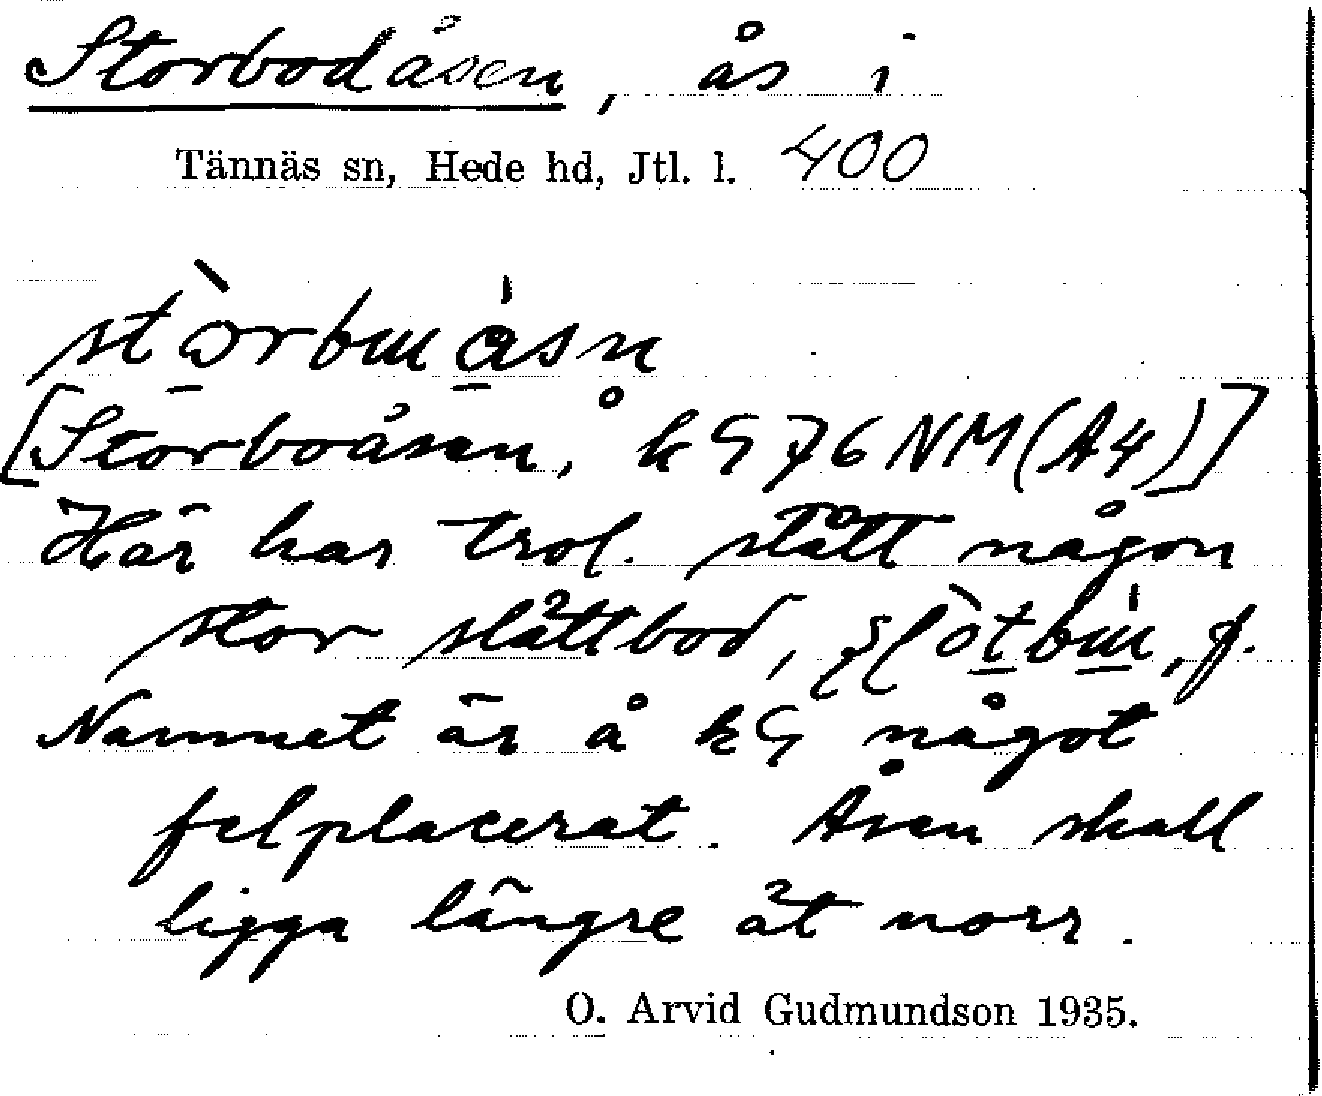 Storbodåsen, ås i
Tännäs sn, Hede hd, Jtl. l. 400
[Storboåsen, å kG 76 NM (A4)]
Här har trol. stått någon
stor slåttbod, f.
Namnet är å kG något
felplacerat. Åsen skall
ligga längre åt norr.
O. Arvid Gudmundson 1935.